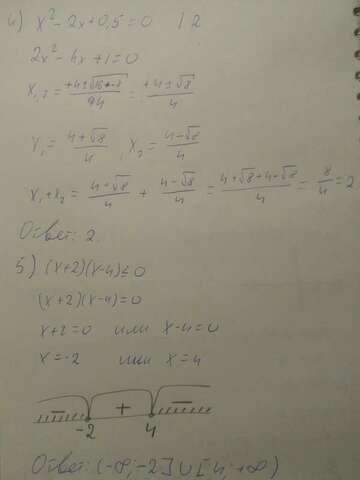 4) x² - 2x + 0,5 = 0 | 2
2x² - 4x + 1 = 0
x₁,₂ = (+4 ± √(16 - 8))/4 = (+4 ± √8)/4
x₁ = (4 + √8)/4, x₂ = (4 - √8)/4
x₁ + x₂ = (4 + √8)/4 + (4 - √8)/4 = (4 + √8 + 4 - √8)/4 = 8/4 = 2
Ответ: 2.
5) (x+2)(x-4) ≤ 0
(x+2)(x-4) = 0
x+2=0 или x-4=0
x=-2 или x=4
- + -
-2 4
Ответ: (-∞; -2] ∪ [4; +∞)